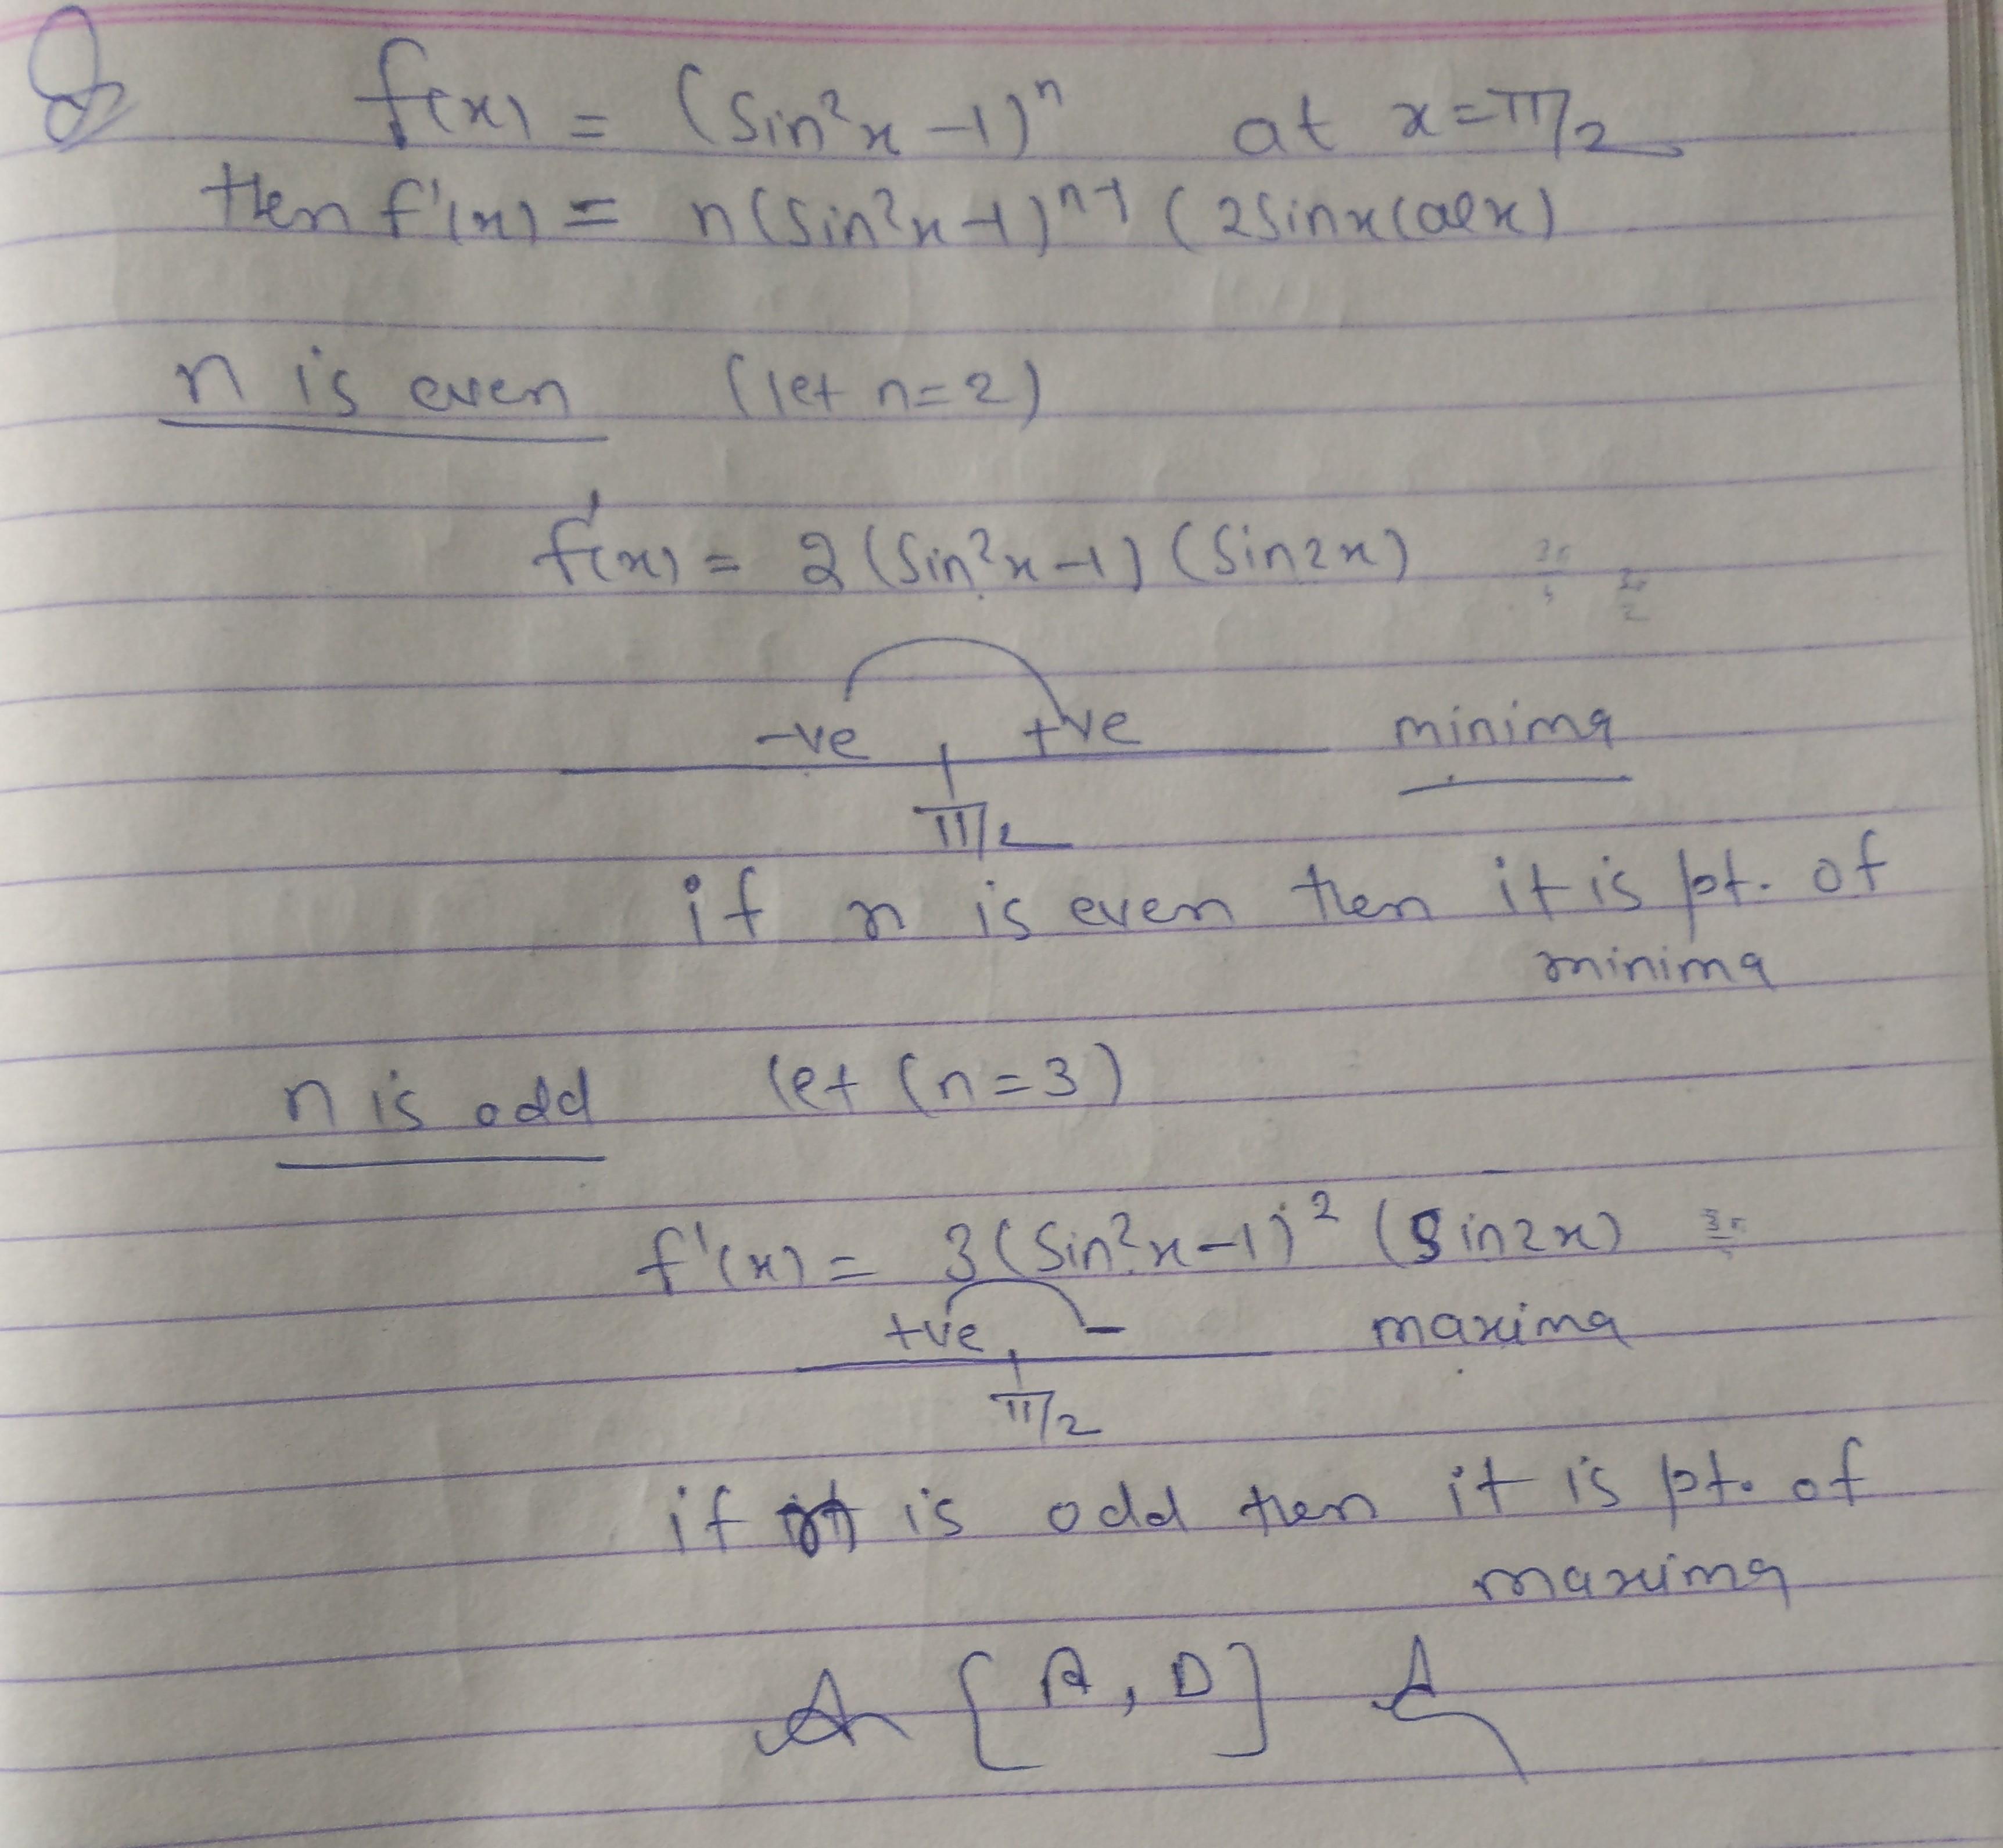 Q f(x) = (Sin²x -1)ⁿ at x=π/2
then f'(x) = n(Sin²x-1)ⁿ⁻¹ (2Sinx Cosx)
n is even (let n=2)
f'(x) = 2(Sin²x-1)(Sin2x)
-ve +ve minima
π/2
if n is even then it is pt. of
minima
n is odd let (n=3)
f'(x) = 3(Sin²x-1)² (Sin2x)
+ve - maxima
π/2
if is odd then it is pt. of
maxima
[A, D]